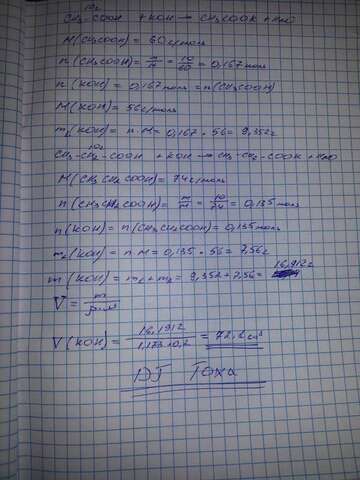 10г
CH3-COOH + KOH → CH3COOK + H2O
M(CH3COOH) = 60 г/моль
n(CH3COOH) = m/M = 10/60 = 0,167 моль
n(KOH) = 0,167 моль = n(CH3COOH)
M(KOH) = 56 г/моль
m1(KOH) = n·M = 0,167 · 56 = 9,352г
10г
CH3-CH2-COOH + KOH → CH3-CH2-COOK + H2O
M(CH3CH2COOH) = 74 г/моль
n(CH3CH2COOH) = m/M = 10/74 = 0,135 моль
n(KOH) = n(CH3CH2COOH) = 0,135 моль
m2(KOH) = n·M = 0,135 · 56 = 7,56г
m(KOH) = m1 + m2 = 9,352 + 7,56 = 16,912г
V = m/ρ·ω
V(KOH) = 16,1912/1,173·0,2 = 72,2 см³
DJ Toxa